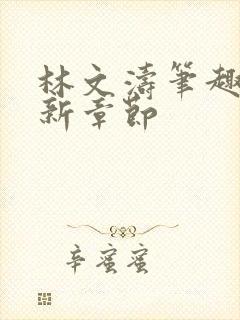 林文濤筆趣
新章節
辛蜜蜜